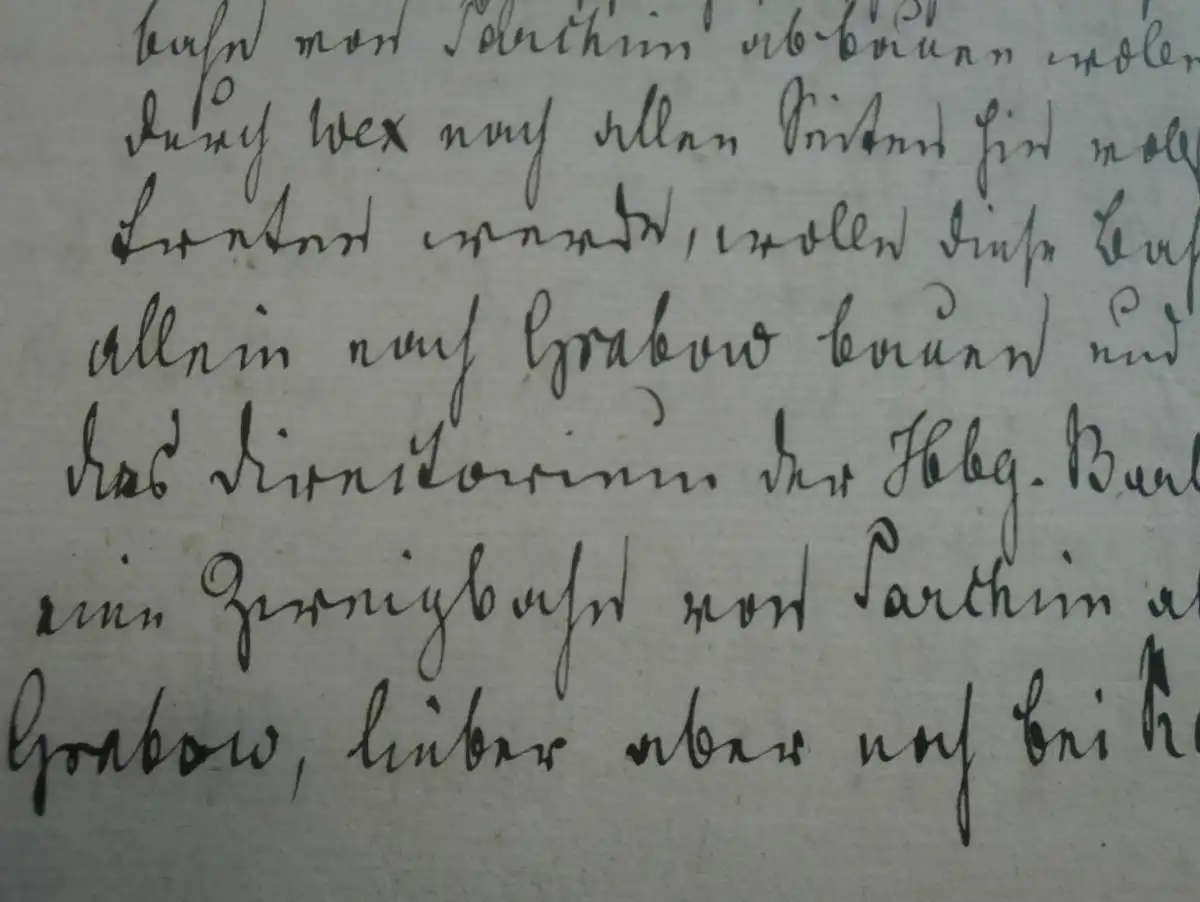 bahn von Parchim abbauen wolle
durch Wex nach allen Seiten hin
treten werde, wolle diese Bah
allein nach Grabow bauen und
das Directorium der Hbg. Berl
eine Zweigbahn von Parchim ab
Grabow, lieber aber noch bei